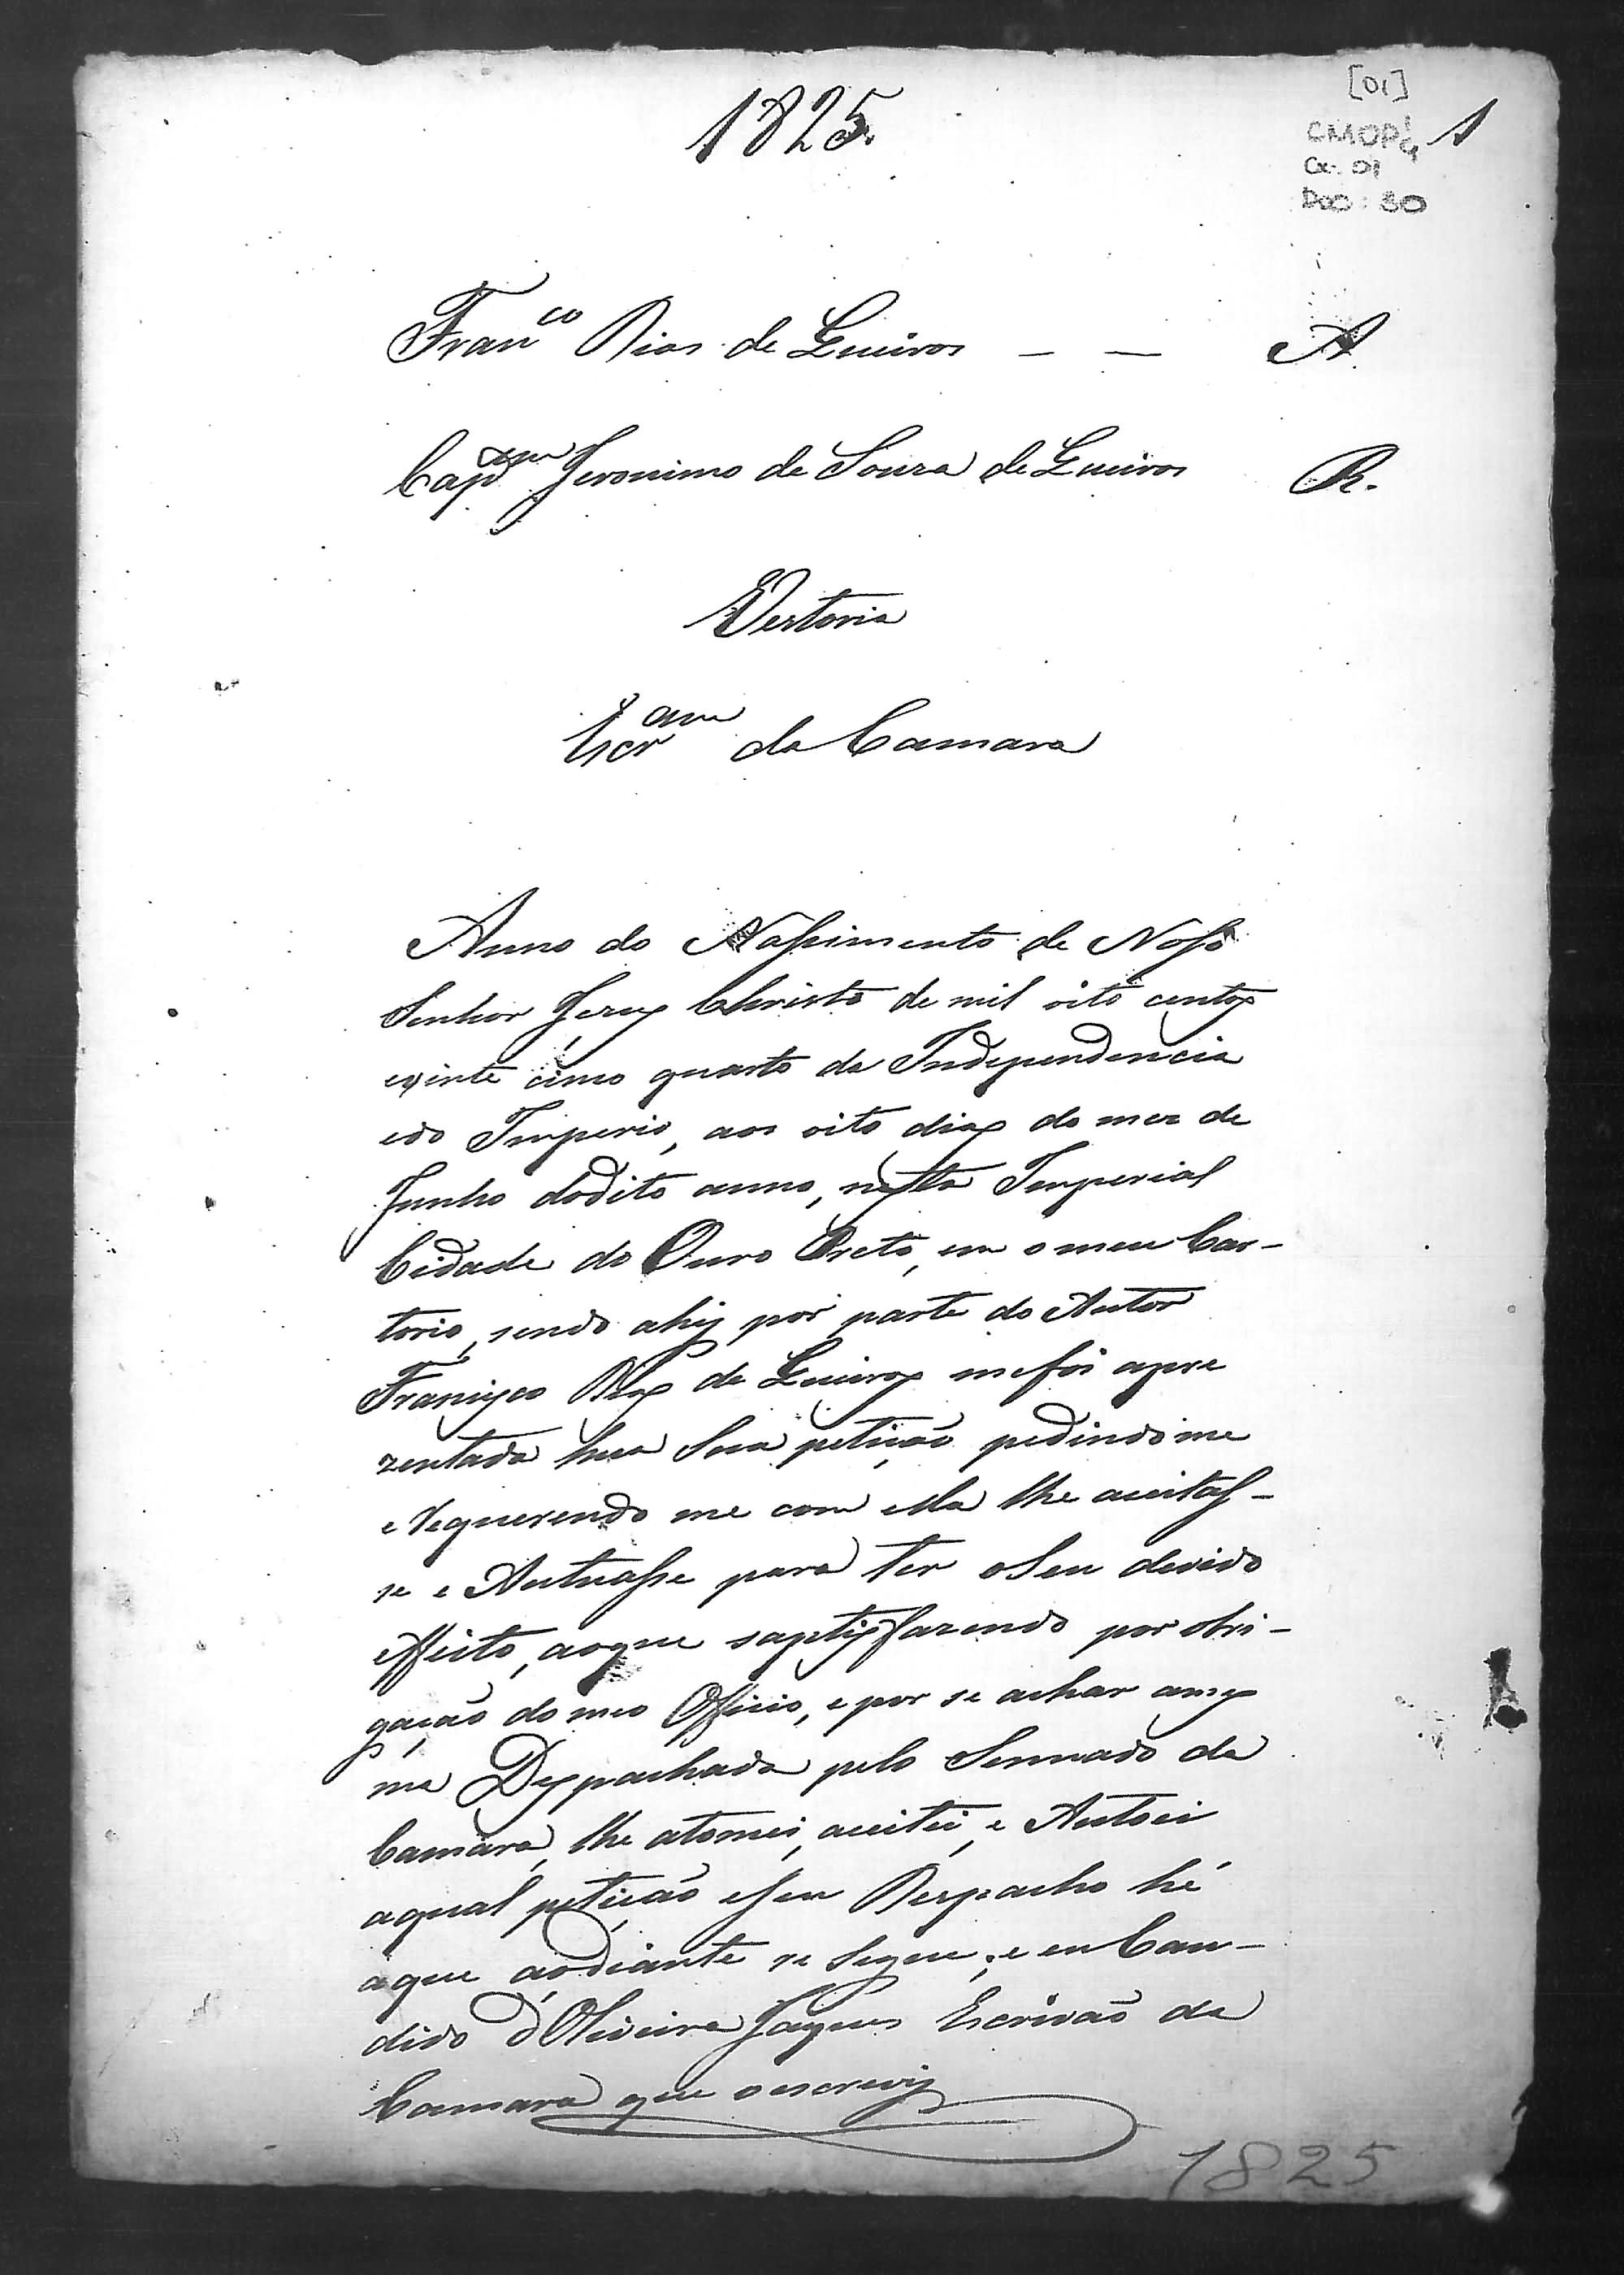 1825.
[01]
CMOP
Cx. 01
Doc: 80
1
Fran.co Dias de Queiros — — A.
Cap.am Jeronimo de Souza de Queiros R.
Vestoria
Escr.am da Camara
Anno do Nassimento de Nosso
Senhor Jezus Christo de mil oito centos
evinte cinco quarto da Independencia
edo Imperio, aos oito dias do mez de
Junho dodito anno, nesta Imperial
Cidade do Ouro Preto, em o meu Car-
torio, sendo ahy por parte do Autor
Francisco Dias de Queiros mefoi apre
zentada hua Sua petição pedindo me
e Requerendo me com ella lhe aceitas-
se e Autuasse para ter oSeu devido
effeito, aoque saptisfazendo por obri-
gação do meo Officio, e por se achar ames
ma Despachada pelo Sennado da
Camara, lhe atomei, aceitei, e Autoei
aqual petição eSeu Despacho hé
aque aodiante se Segue; e eu Can-
dido d'Oliveira Jaques Escrivão da
Camara que o escrevy
1825